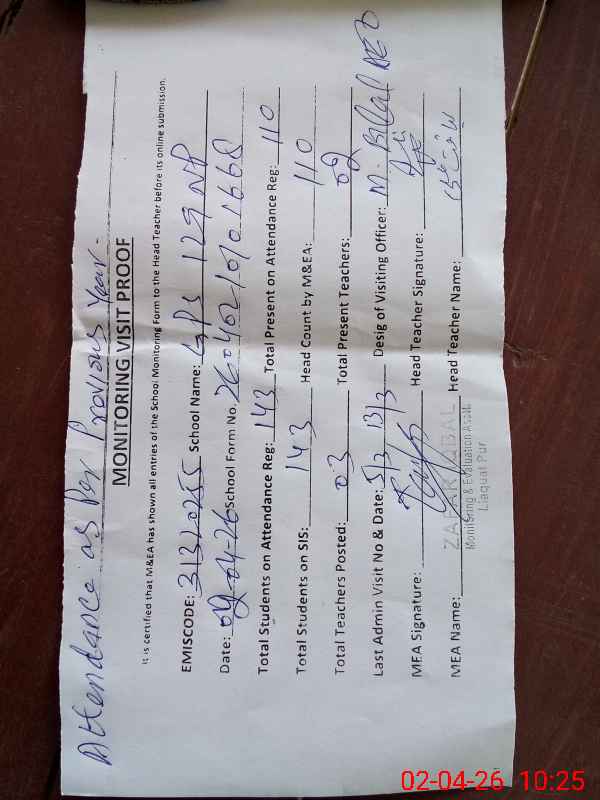 Attendance as Per Previous Year.
MONITORING VISIT PROOF
It is certified that M&EA has shown all entries of the School Monitoring Form to the Head Teacher before its online submission.
EMISCODE: 31320255 School Name: GPS 129 NP
Date: 02-04-26 School Form No. 26040210101668
Total Students on Attendance Reg: 143 Total Present on Attendance Reg: 110
Total Students on SIS: 143 Head Count by M&EA: 110
Total Teachers Posted: 03 Total Present Teachers: 02
Last Admin Visit No & Date: 5/3 13/3 Desig of Visiting Officer: M. Bilal AEO
MEA Signature: Head Teacher Signature:
MEA Name: ZAFAR IQBAL Head Teacher Name:
Monitoring & Evaluation Asstt.
Liaquat Pur
02-04-26 10:25